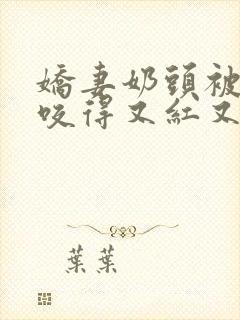 嬌妻奶頭被
咬得又紅又
葉葉